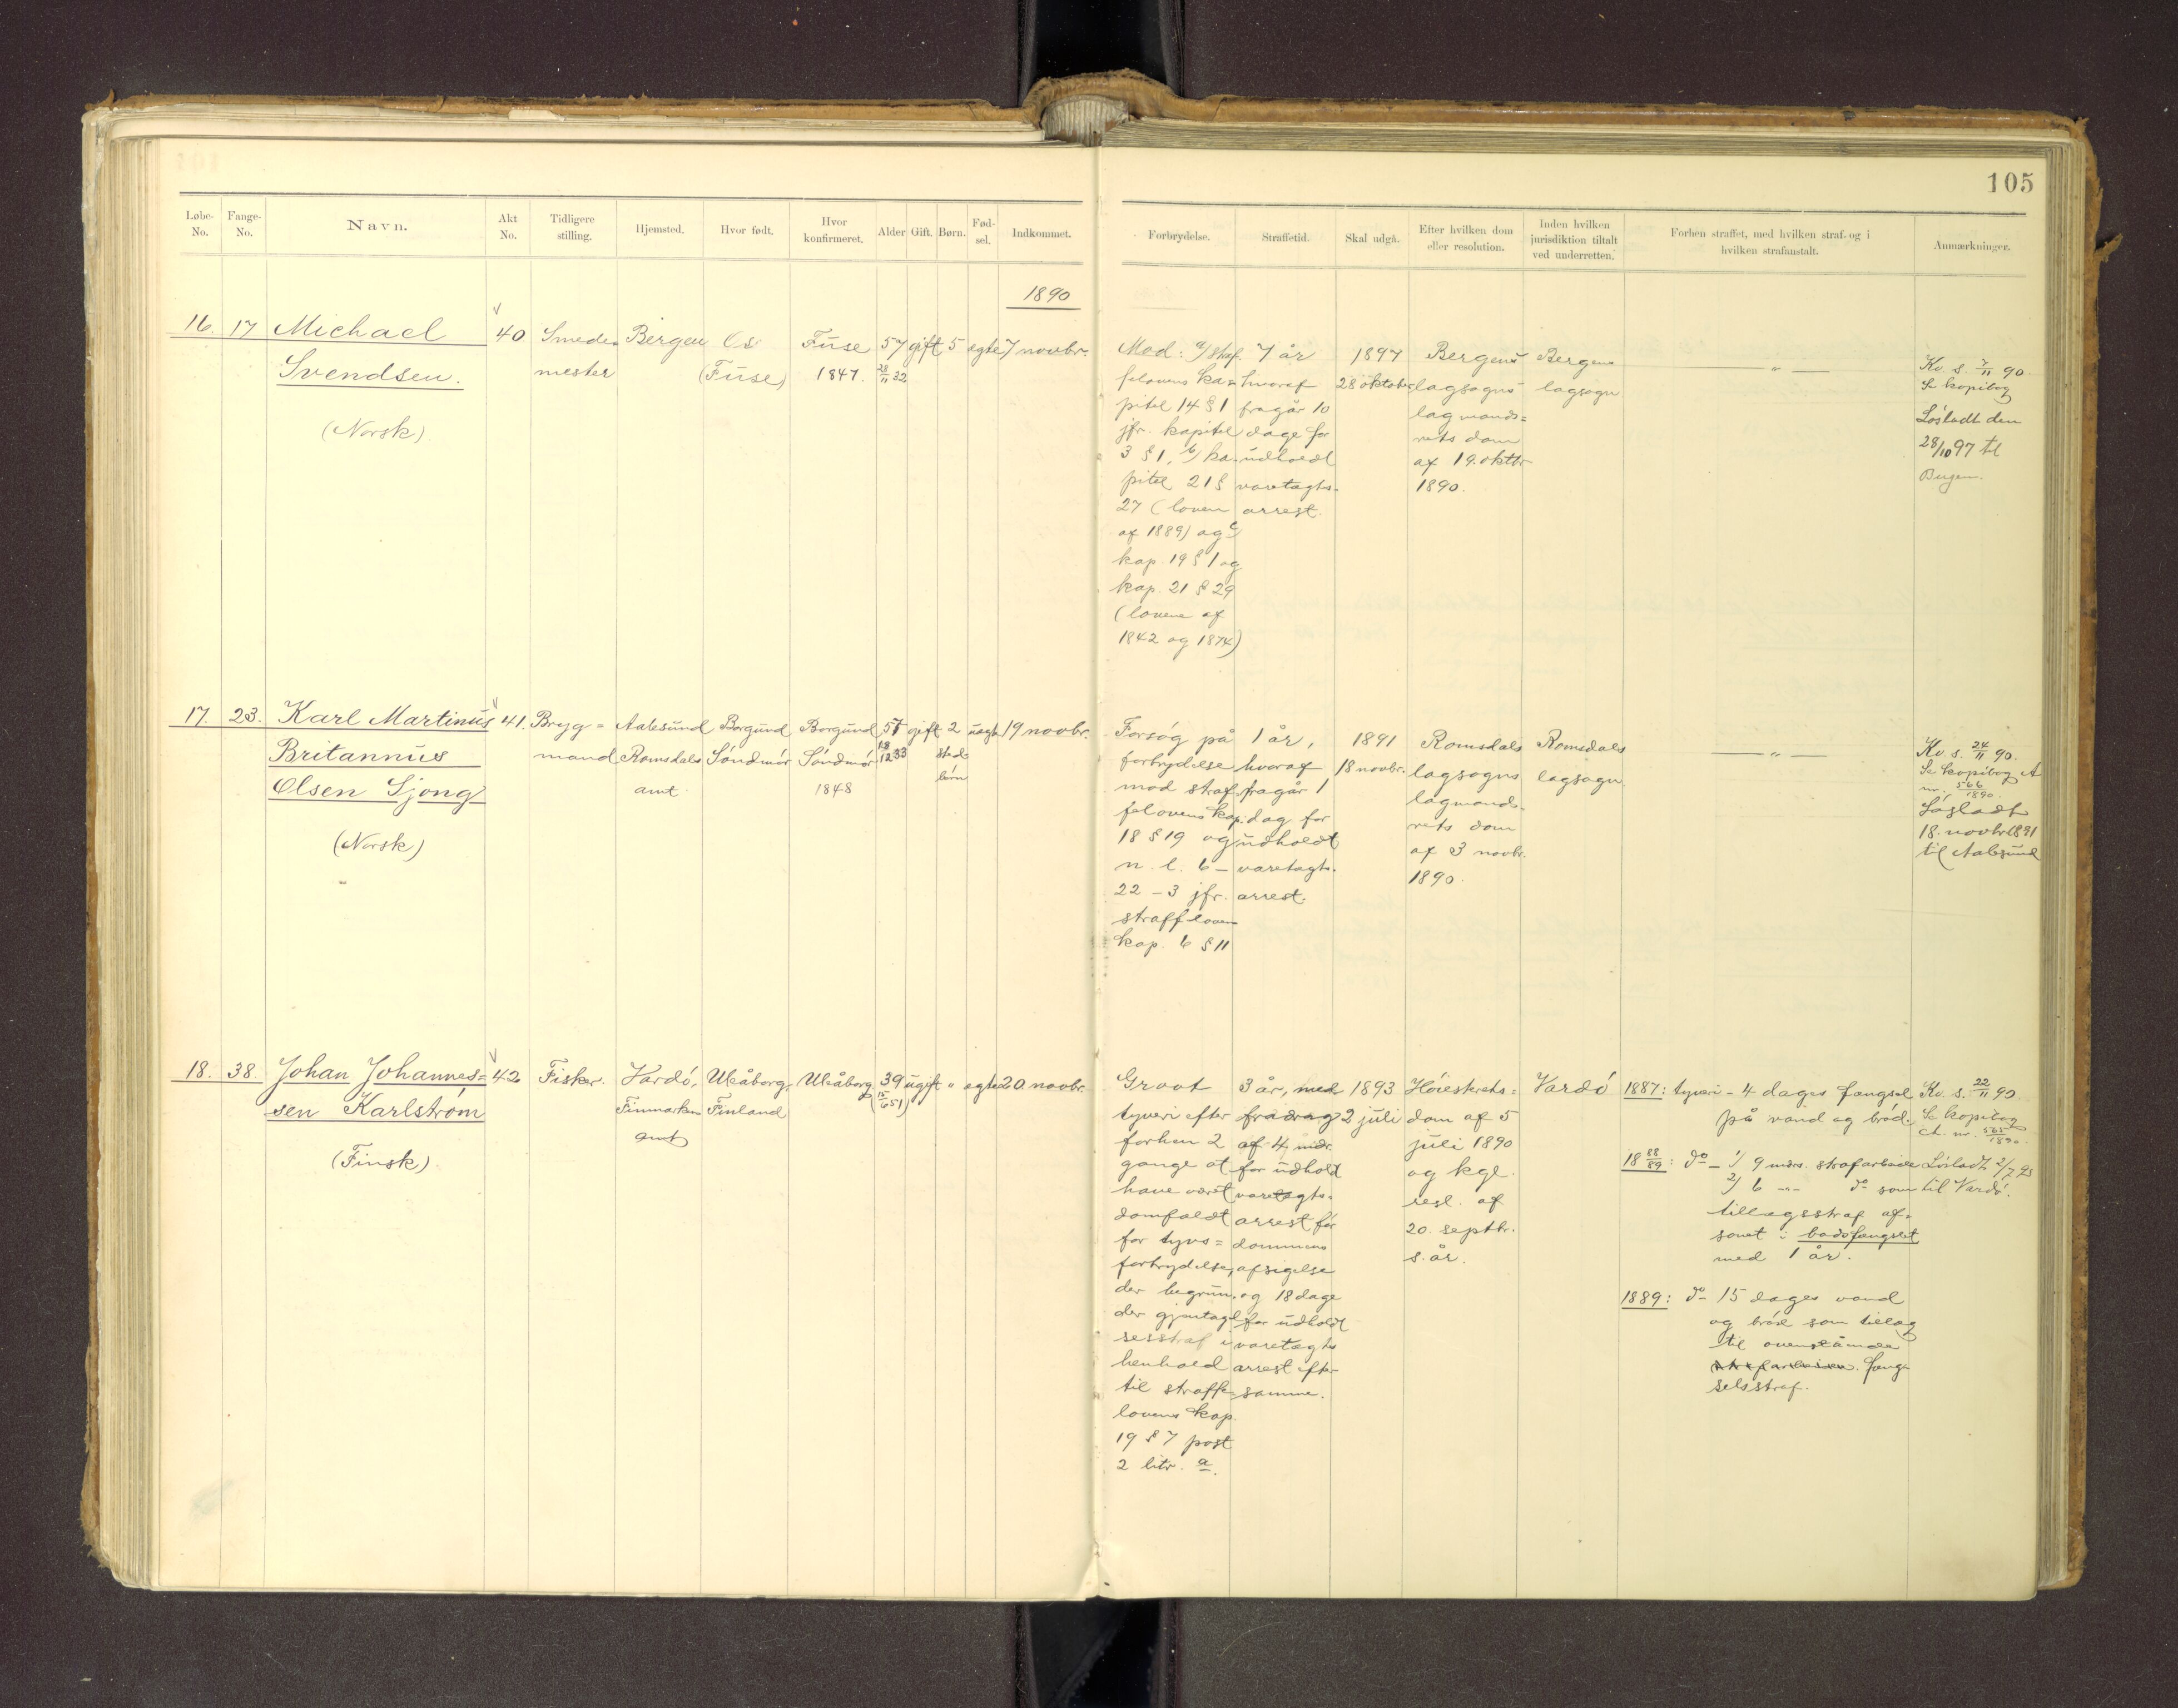 105
Løbe-No.
Fange-No.
Navn.
Akt No.
Tidligere stilling.
Hjemsted.
Hvor født.
Hvor konfirmeret.
Alder
Gift.
Børn.
Fødsel.
Indkommet.
Forbrydelse.
Straffetid.
Skal udgå.
Efter hvilken dom eller resolution.
Inden hvilken jurisdiktion tiltalt ved underretten.
Forhen straffet, med hvilken straf og i hvilken strafanstalt.
Anmærkninger.
1890
16.
17
Michael
Svendsen.
(Norsk)
40
Smede-
mester
Bergen
Os
(Fuse)
Fuse
1847.
57
28/11 32
gift
5
ægte
7 novbr.
Mod: a/ straf-
felovens ka-
pitel 14 § 1
jfr. kapitel
3 § 1, b/ ka-
pitel 21 §
27 (loven
af 1889) og c/
kap. 19 § 1 og
kap. 21 § 29
(lovene af
1842 og 1874)
7 år
hvoraf
fragår 10
dage for
udholdt
varetægts-
arrest.
1897
28 oktober
Bergens
lagsogns
lagmands=
rets dom
af 19. oktbr
1890.
Bergens
lagsogn
— " —
Kv. s. 7/11 90.
Se kopibog
Løsladt den
28/10 97 til
Bergen.
17.
23.
Karl Martinus
Britannus
Olsen Sjong
(Norsk)
41.
Bryg=
mand
Aalesund
Romsdals
amt
Borgund
Søndmør
Borgund
Søndmør
1848
57
18/12 33
gift
2
sted-
børn
uægte
19 novbr.
Forsøg på
forbrydelse
mod straf-
felovens kap.
18 § 19 og
n. l. 6 –
22 – 3 jfr.
straffloven
kap. 6 § 11
1 år,
hvoraf
fragår 1
dag for
udholdt
varetægts-
arrest.
1891
18 novbr.
Romsdals
lagsogns
lagmands-
rets dom
af 3 novbr.
1890.
Romsdals
lagsogn.
— " —
Kv. s. 24/11 90.
Se kopibog A
nr. 566/1890.
Løsladt
18. novbr 1891
til Aalesund
18.
38.
Johan Johannes=
sen Karlstrøm
(Finsk)
42
Fisker.
Vardø,
Finmarkens
amt
Uleåborg,
Finland
Uleåborg
39
(15/6 51)
ugift
"
ægte
20. novbr.
Grovt
tyveri efter
forhen 2
gange at
have været
domfældt
for tyvs=
forbrydelse,
der begrun-
der gjentagel-
sesstraf i
henhold
til straffe-
lovens kap.
19 § 7 post
2 litr. a.
3 år, med
fradrag
af 4 mdr.
for udholdt
varetægts-
arrest før
dommens
afsigelse
og 18 dage
for udholdt
varetægts
arrest efter
samme.
1893
2 juli
Høiesterets=
dom af 5
juli 1890
og kgl.
resl. af
20. septbr.
s. år.
Vardø
1887: tyveri – 4 dages fængsel
på vand og brød.
18 88/89: do – 1/ 9 mdrs. strafarbeide
2/ 6 –"– do som
tillægsstraf af-
sonet i bodsfængslet
med 1 år.
1889: do 15 dages vand
og brød som tillæg
til ovenstående
strafarbeide. fæng-
selsstraf.
Kv. s. 22/11 90.
Se kopibog
A. nr. 565/1890.
Løsladt 2/7 93
til Vardø.